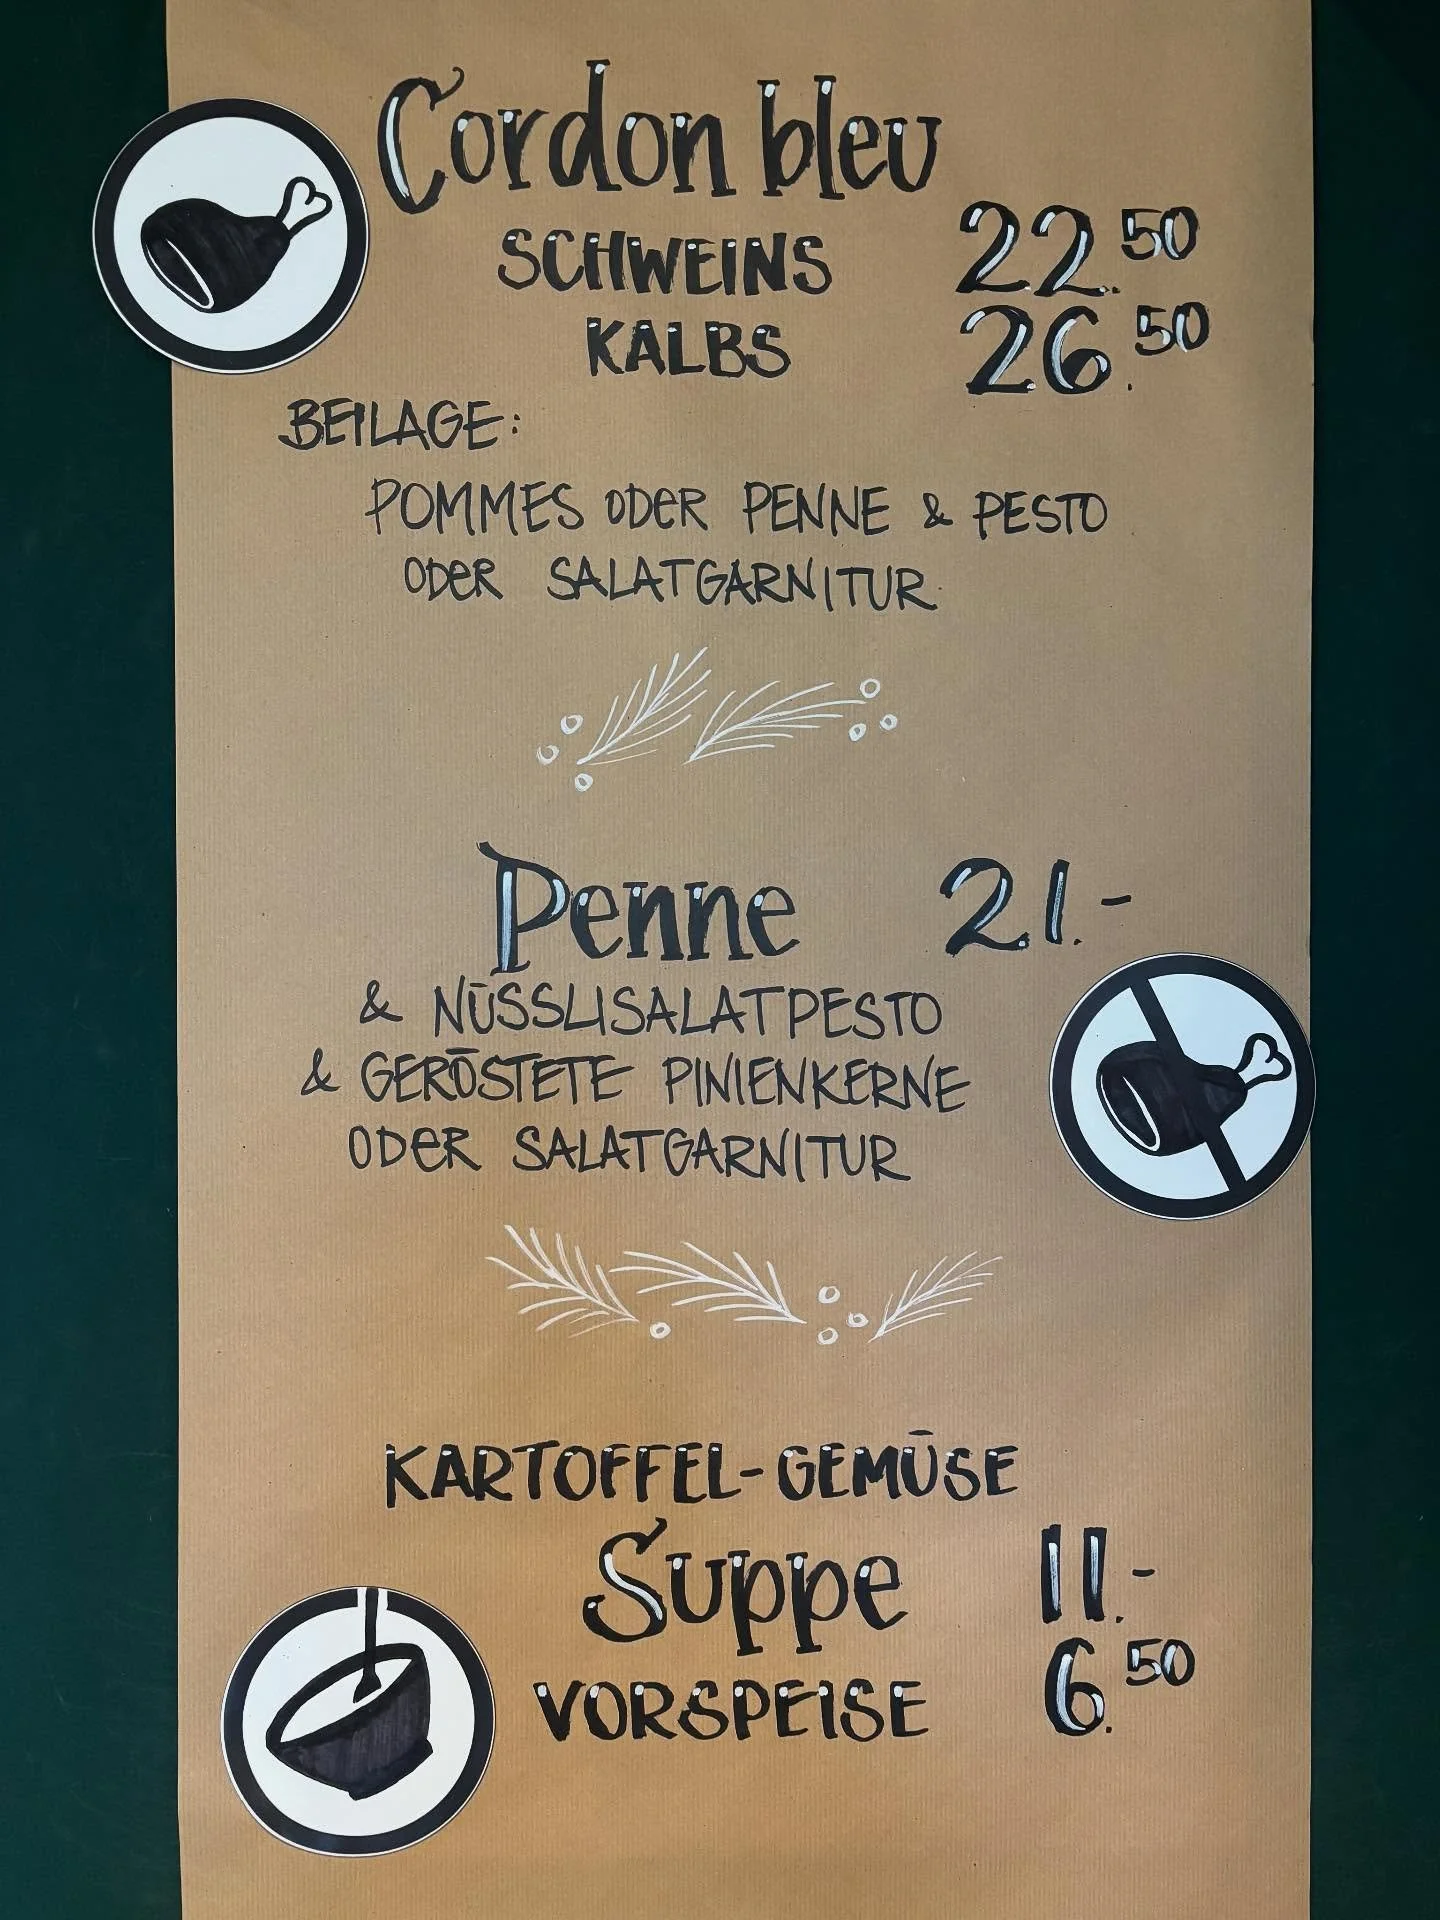 Cordon bleu
SCHWEINS 22.50
KALBS 26.50
BEILAGE:
POMMES ODER PENNE & PESTO
ODER SALATGARNITUR
Penne 21.-
& NÜSSLISALATPESTO
& GERÖSTETE PINIENKERNE
ODER SALATGARNITUR
KARTOFFEL-GEMÜSE
Suppe 11.-
VORSPEISE 6.50